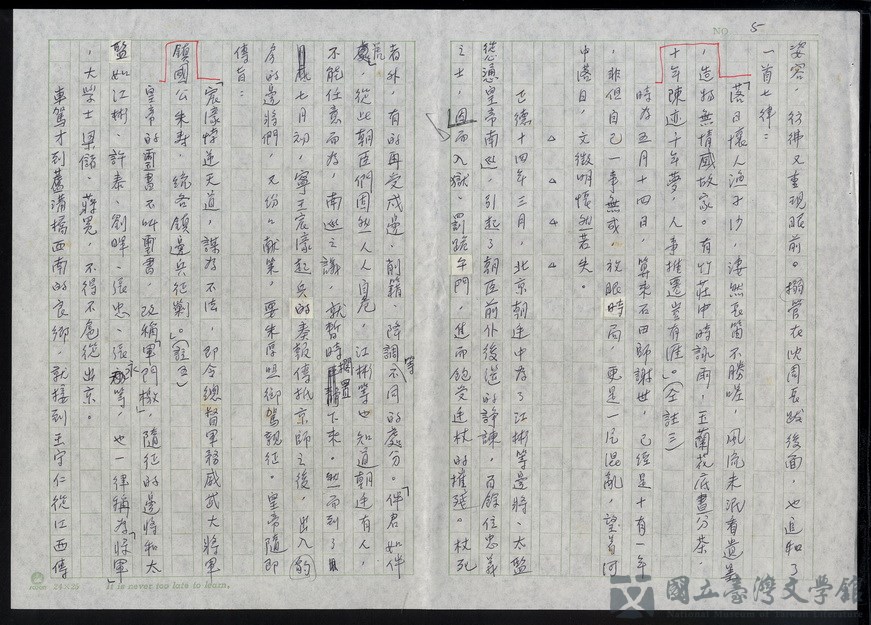 NO 5
姿容，彷彿又重現眼前。搦管在沈周長跋後面，也追和了
一首七律：
「落日懷人漁子沙，淒然長笛不勝嗟，風流未泯看遺墨
，造物無情感故家。有竹莊中時詠雨，玉蘭花底晝分茶，
十年陳迹十年夢，人事推遷豈有涯。」（仝註三）
時為五月十四日，算來石田師謝世，已經是十有一年
，非但自己一事無成，放眼時局，更是一片混亂，望著河
中落日，文徵明悵然若失。
△ △ △ △
正德十四年三月，北京朝廷中為了江彬等邊將、太監
慫恿皇帝南巡，引起了朝臣前仆後逃的諍諫，百餘位忠義
之士，因而入獄、罰跪午門，進而飽受廷杖的摧殘。杖死
者外，有的再受戍邊、削籍、降調等不同的處分。「伴君如伴
虎」，從此朝臣們固然人人自危，江彬等也知道朝廷有人，
不能任意而為，南巡之議，就暫時擱置下來。然而到了
七月初，寧王宸濠起兵的奏報傳抵京師之後，出入豹
房的邊將們，又紛紛獻策，要朱厚照御駕親征。皇帝隨即
傳旨：
「宸濠悖逆天道，謀為不法，即令總督軍務威武大將軍
鎮國公朱壽，統各鎮邊兵征剿。」（註五）
皇帝的璽書不叫璽書，改稱「軍門檄」，隨征的邊將和太
監如江彬、許泰、劉暉、張忠、張永等，也一律稱為「將軍」
，大學士梁儲、蔣冕，不得不扈從出京。
車駕才到蘆溝橋西南的良鄉，就接到王守仁從江西傳
24×25
It is never too late to learn.
國立臺灣文學館
National Museum of Taiwan Literature